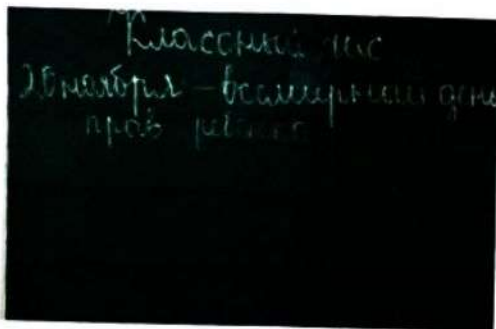 Классный час
20 ноября – всемирный день
прав ребёнка